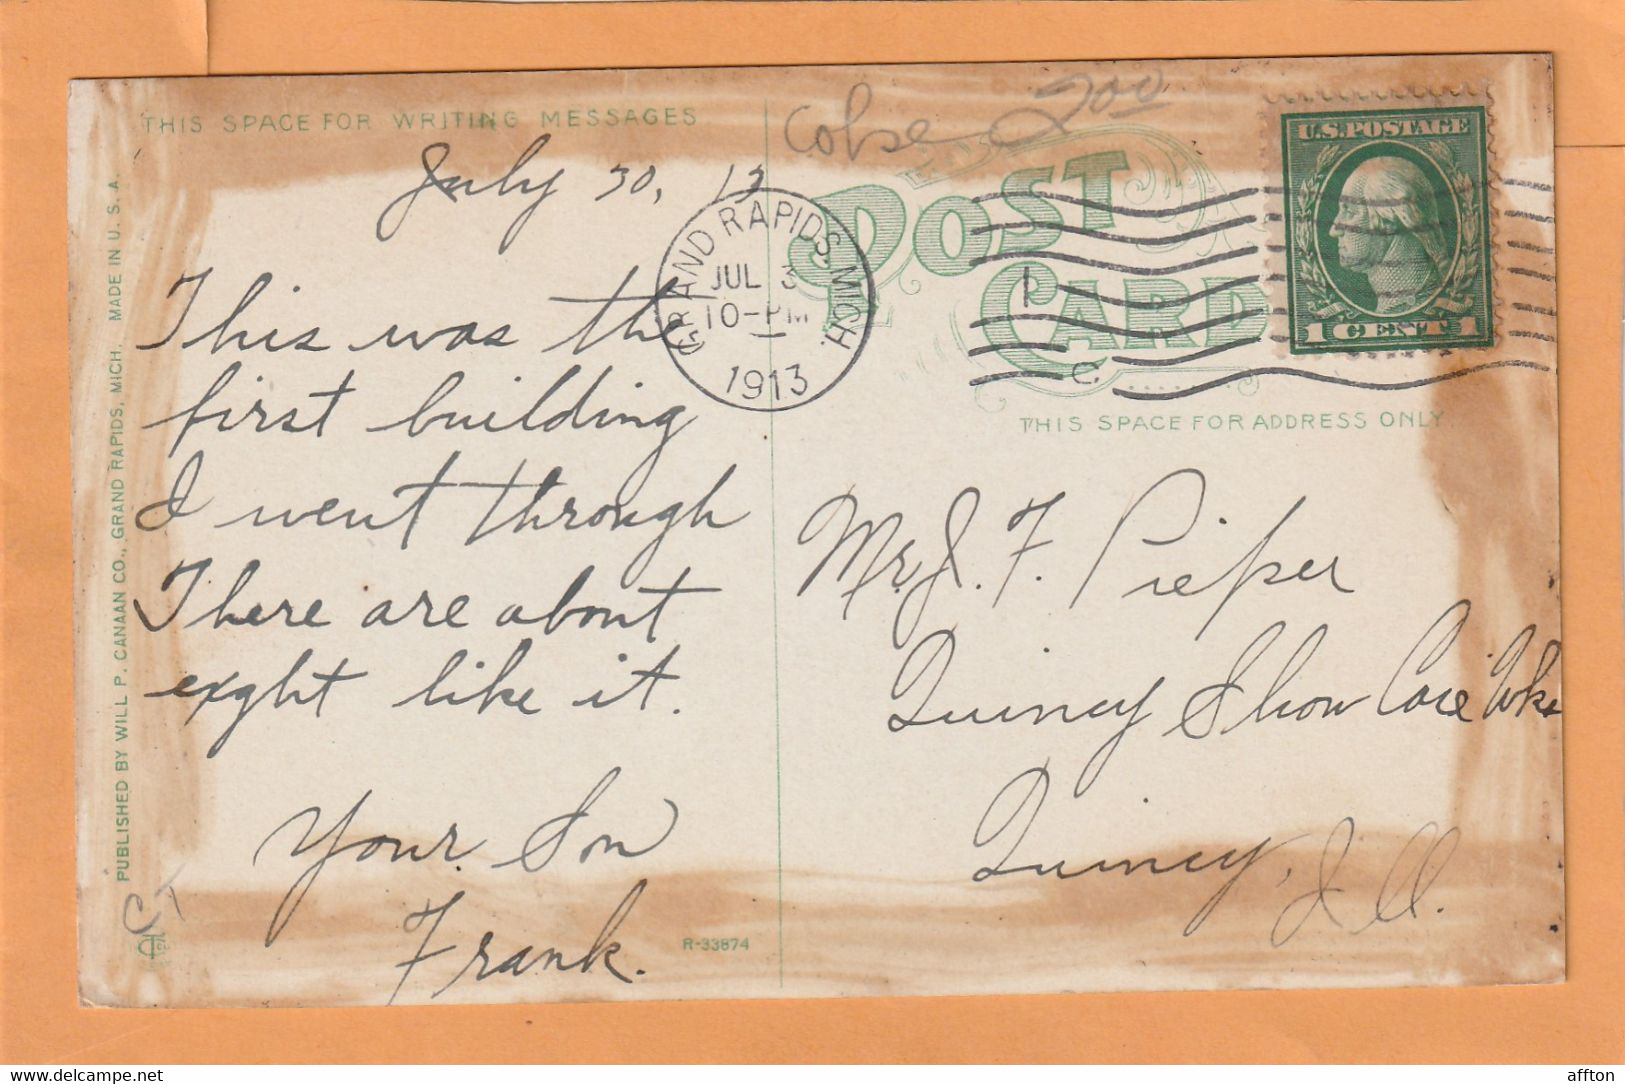 THIS SPACE FOR WRITING MESSAGES
July 30, 13
This was the
first building
I went through
There are about
exght like it.
Your Son
Frank.
R-33874
PUBLISHED BY WILL P. CANAAN CO., GRAND RAPIDS, MICH. MADE IN U. S. A.
200
POST CARD
GRAND RAPIDS, MICH.
JUL 3
10-PM
1913
U.S. POSTAGE
1 CENT 1
THIS SPACE FOR ADDRESS ONLY
Mr. J. F. Pieper
Quincy Show Case Wks
Quincy, Ill.
affton
www.delcampe.net